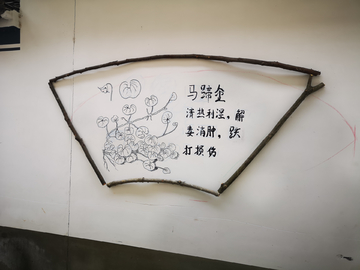 马蹄金
清热利湿，解
毒消肿，跌
打损伤